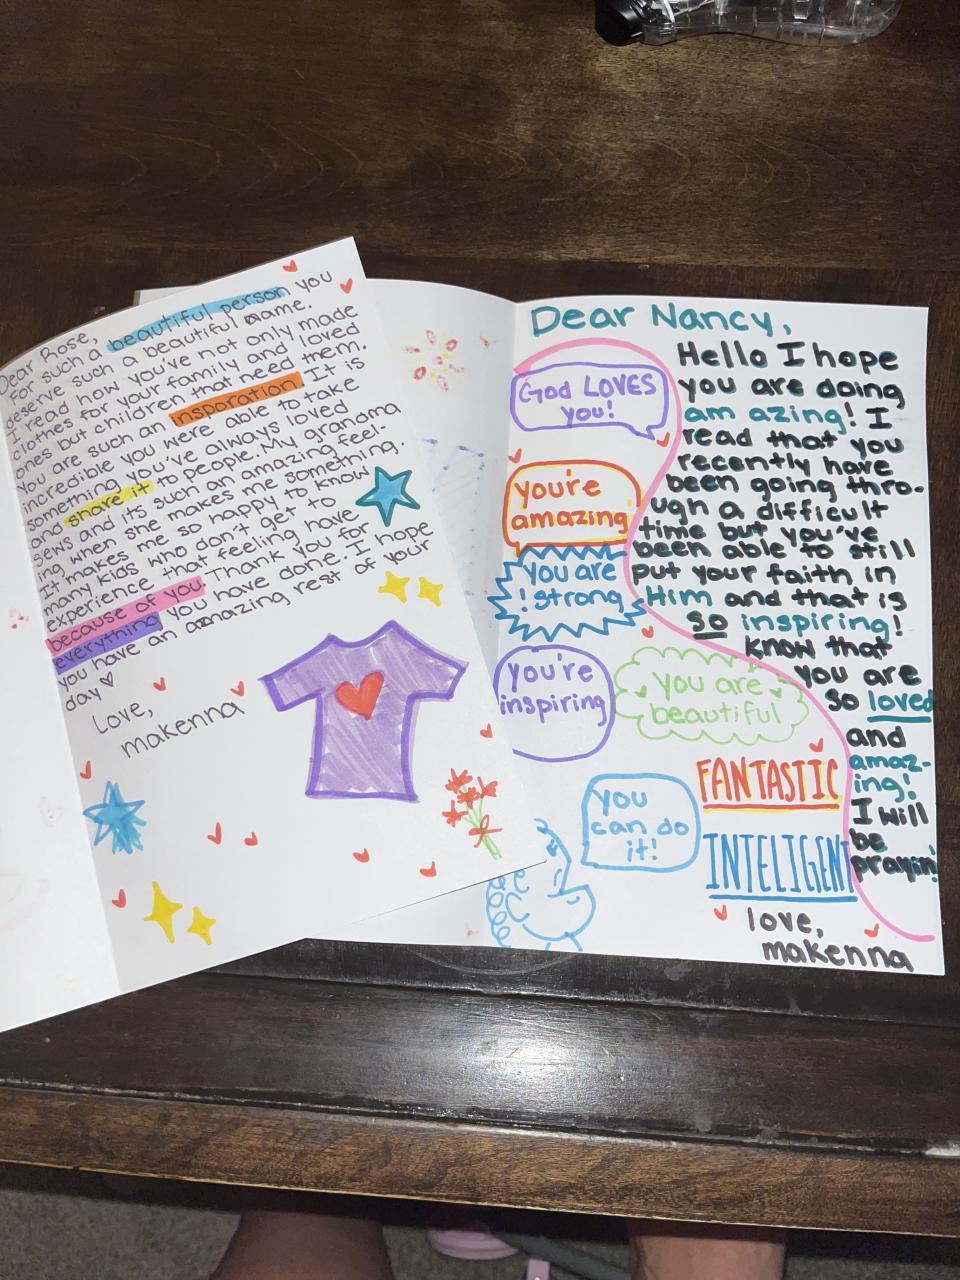 Dear Rose,
for such a beautiful person you
deserve such a beautiful name.
I read how you've not only made
clothes for your family and loved
ones but children that need them.
You are such an insporation. It is
incredible you were able to take
something you've always loved
and share it to people. My grandma
sews and its such an amazing feel-
ing when she makes me something.
It makes me so happy to know
many kids who don't get to
experience that feeling have
because of you. Thank you for
everything you have done. I hope
you have an amazing rest of your
day
Love,
makenna
Dear Nancy,
Hello I hope
you are doing
am azing! I
read that you
recently have
been going thro-
ugh a difficult
time but you've
been able to still
put your faith in
Him and that is
so inspiring!
know that
you are
so loved
and
amaz-
ing!
I will
be
prayin!
God LOVES
you!
you're
amazing
you are
strong!
you're
inspiring
you are
beautiful
FANTASTIC
you
can do
it!
INTELIGENT
love,
makenna